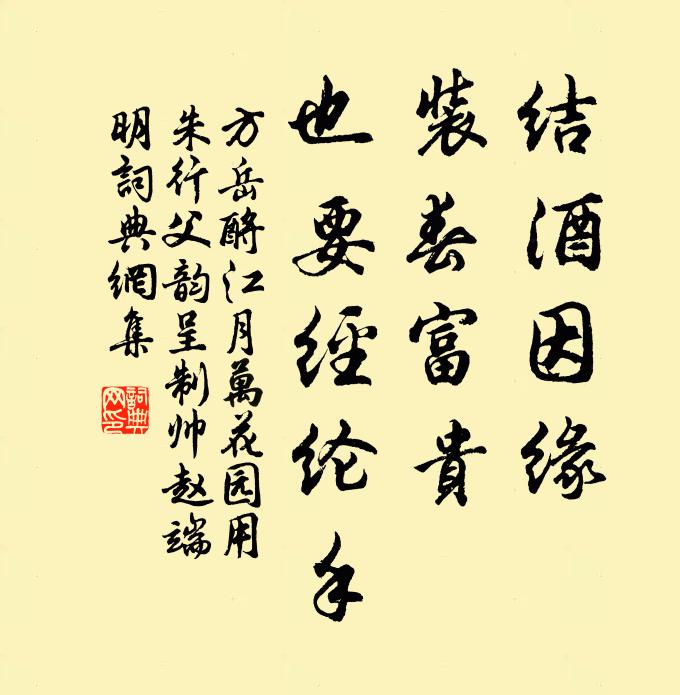 结酒因缘
装春富貴
也要經纶手
方岳酹江月萬花园用
朱行父韵呈制帅赵端
明詞典網集
詞典
网印